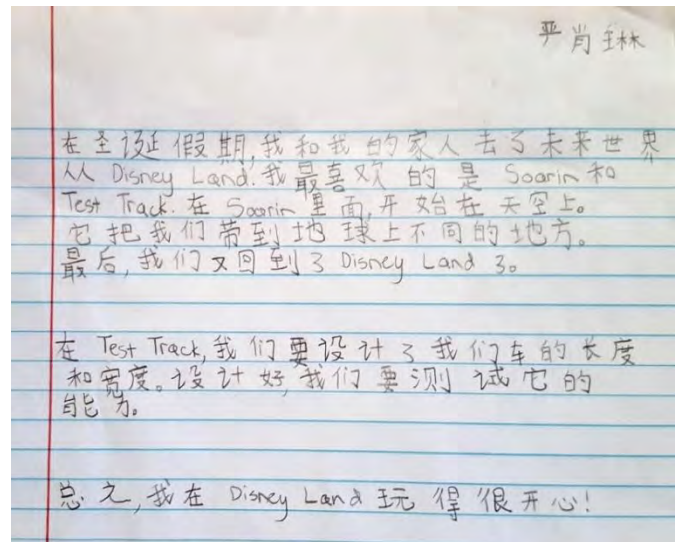 严肖琳
在圣诞假期,我和我的家人去了未来世界
从 Disney Land. 我最喜欢的是 Soarin 和
Test Track. 在 Soarin 里面,开始在天空上。
它把我们带到地球上不同的地方。
最后,我们又回到了 Disney Land 了。
在 Test Track, 我们要设计了我们车的长度
和宽度。设计好,我们要测试它的
能力。
总之,我在 Disney Land 玩得很开心!